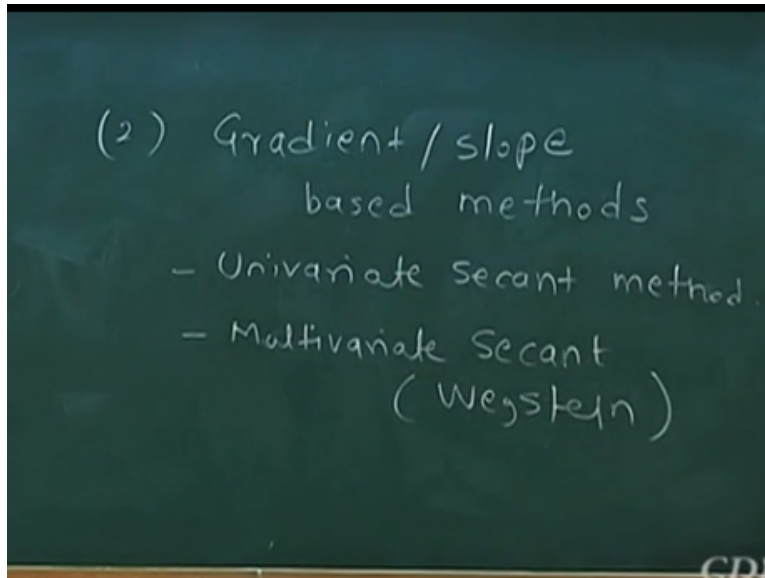 (2) Gradient / slope
based methods
- Univariate secant method.
- Multivariate secant
(Wegstein)